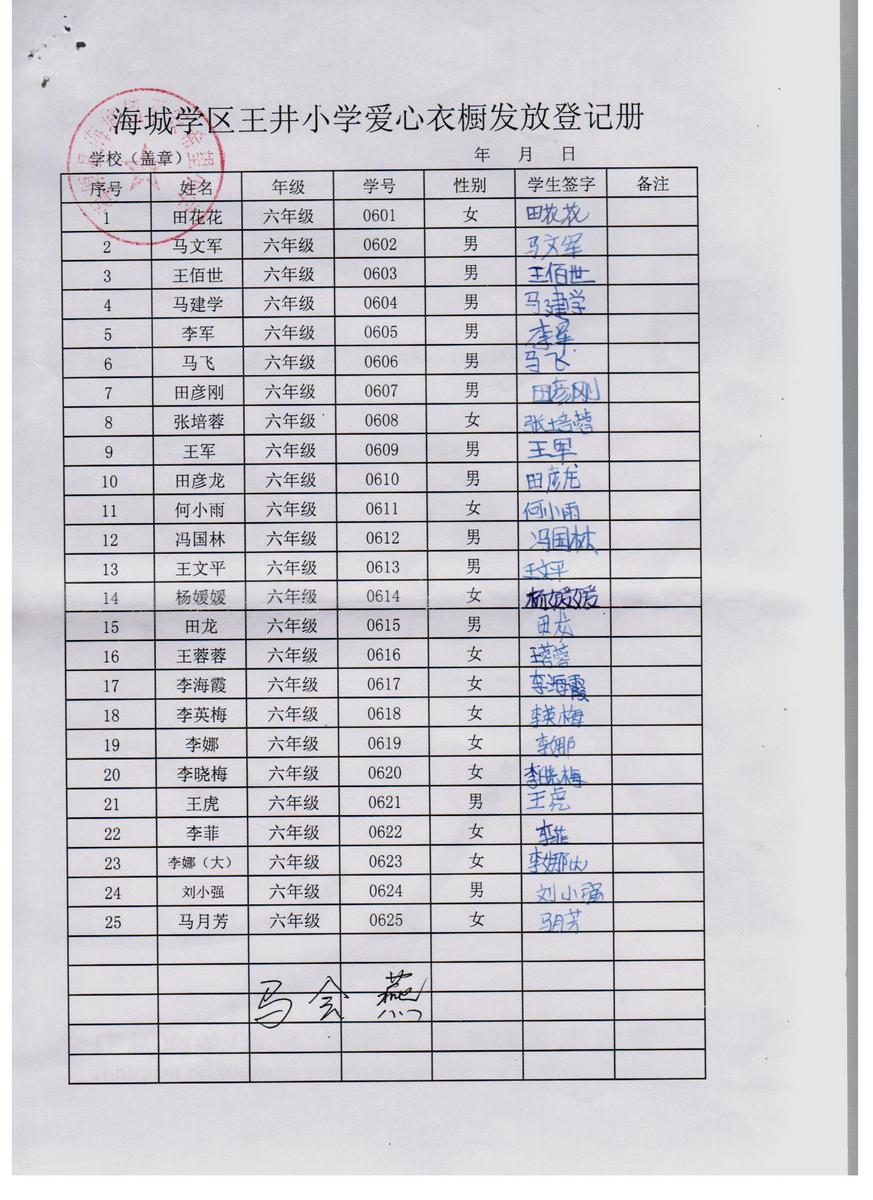 海城学区王井小学爱心衣橱发放登记册
学校（盖章） 年 月 日
序号 姓名 年级 学号 性别 学生签字 备注
1 田花花 六年级 0601 女 田花花
2 马文军 六年级 0602 男 马文军
3 王佰世 六年级 0603 男 王佰世
4 马建学 六年级 0604 男 马建学
5 李军 六年级 0605 男 李军
6 马飞 六年级 0606 男 马飞
7 田彦刚 六年级 0607 男 田彦刚
8 张培蓉 六年级 0608 女 张培蓉
9 王军 六年级 0609 男 王军
10 田彦龙 六年级 0610 男 田彦龙
11 何小雨 六年级 0611 女 何小雨
12 冯国林 六年级 0612 男 冯国林
13 王文平 六年级 0613 男 王文平
14 杨媛媛 六年级 0614 女 杨媛媛
15 田龙 六年级 0615 男 田龙
16 王蓉蓉 六年级 0616 女 王蓉蓉
17 李海霞 六年级 0617 女 李海霞
18 李英梅 六年级 0618 女 李英梅
19 李娜 六年级 0619 女 李娜
20 李晓梅 六年级 0620 女 李晓梅
21 王虎 六年级 0621 男 王虎
22 李菲 六年级 0622 女 李菲
23 李娜（大） 六年级 0623 女 李娜大
24 刘小强 六年级 0624 男 刘小强
25 马月芳 六年级 0625 女 马月芳
马会燕